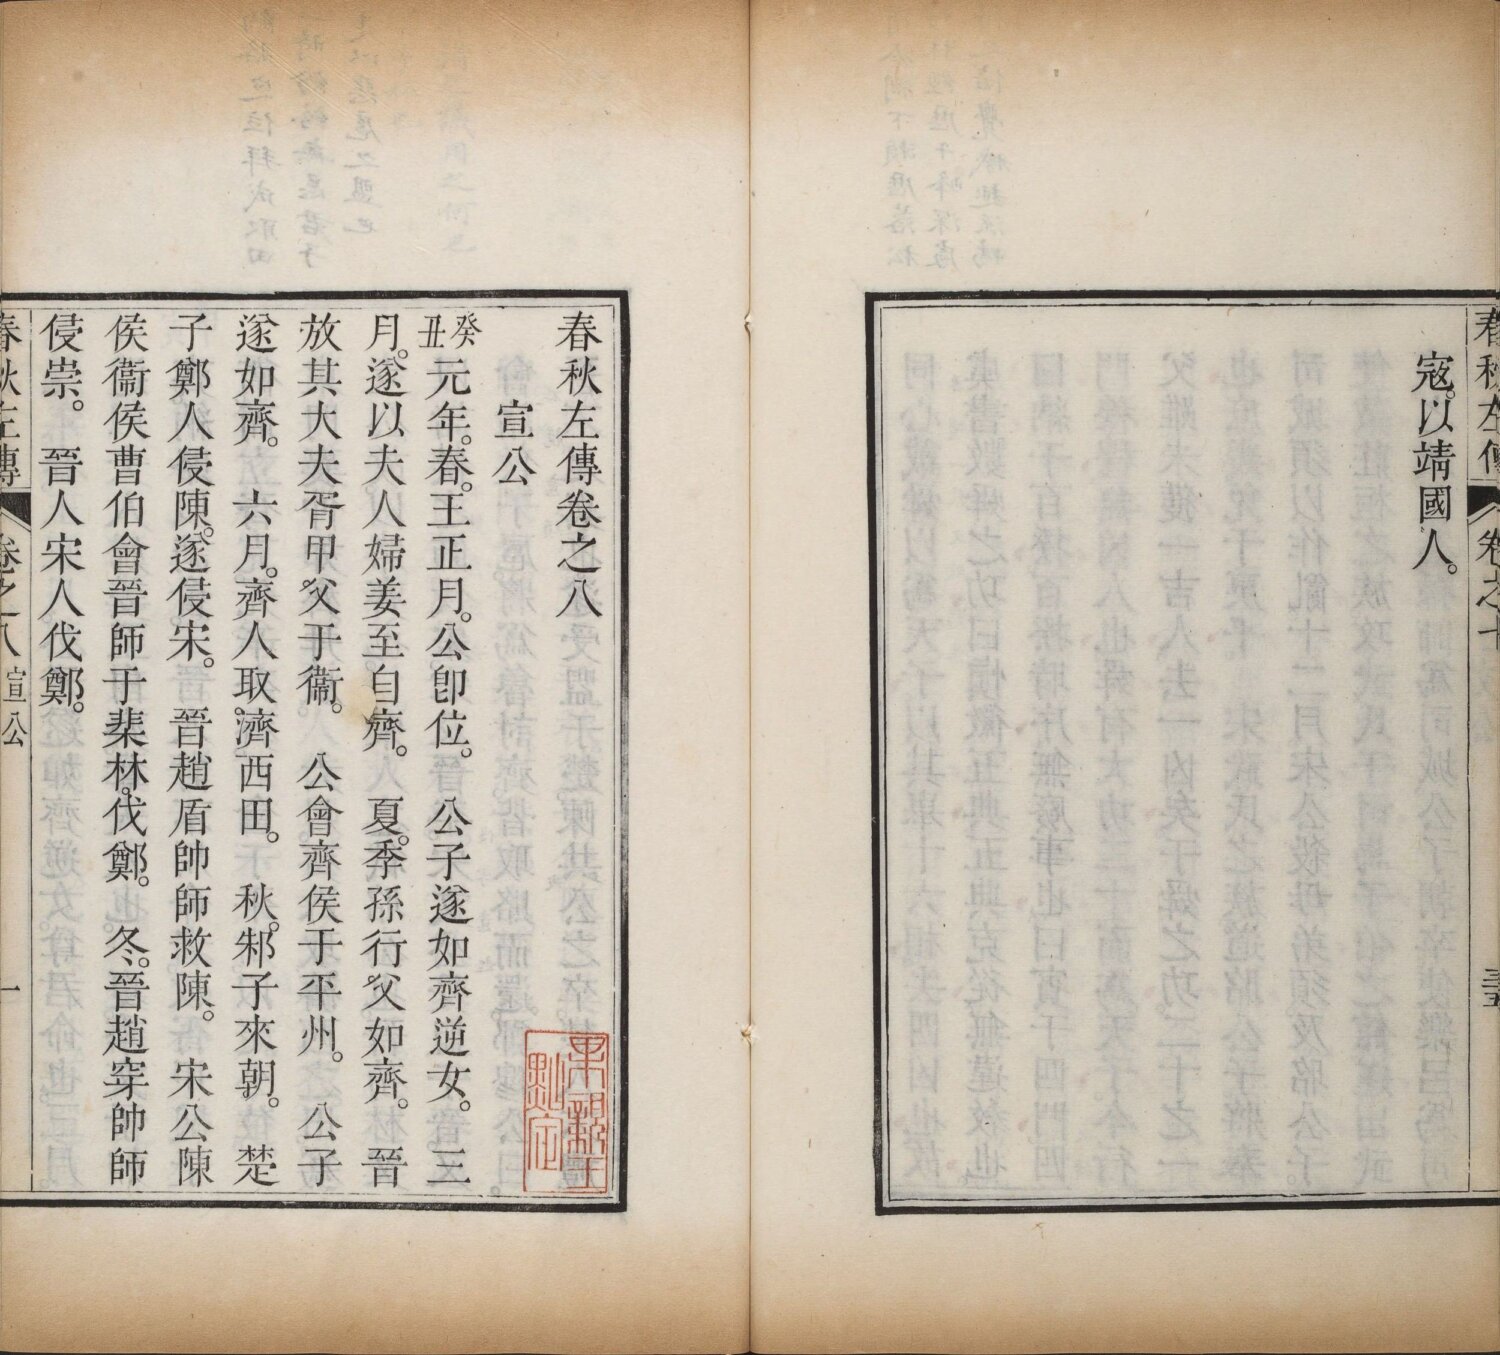 春秋左傳 卷之七
寇。以靖國人。
春秋左傳卷之八
宣公
癸丑元年。春。王正月。公卽位。 公子遂如齊逆女。三
月。遂以夫人婦姜至自齊。 夏。季孫行父如齊。 晉
放其大夫胥甲父于衞。 公會齊侯于平州。 公子
遂如齊。 六月。齊人取濟西田。 秋。邾子來朝。 楚
子鄭人侵陳。遂侵宋。 晉趙盾帥師救陳。 宋公陳
侯衞侯曹伯會晉師于棐林。伐鄭。 冬。晉趙穿帥師
侵崇。 晉人宋人伐鄭。
春秋左傳 卷之八 宣公 一